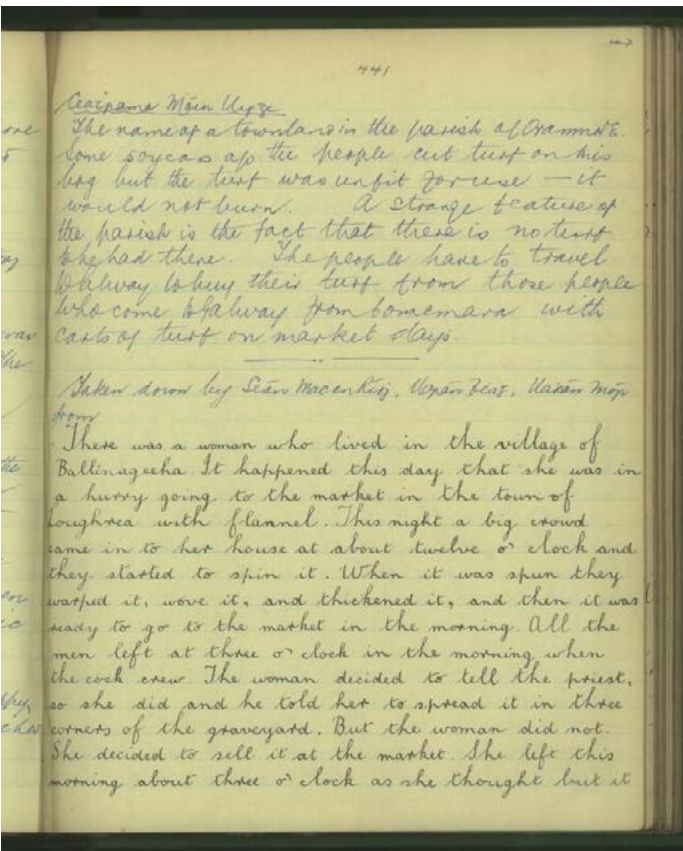 441
The name of a townland in the parish of Oranmore.
Some 50 years ago the people cut turf on this
bog but the turf was unfit for use — it
would not burn. A strange feature of
the parish is the fact that there is no turf
to be had there. The people have to travel
to Galway to buy their turf from those people
who come to Galway from Connemara with
carts of turf on market days.
Taken down by Seán
from
There was a woman who lived in the village of
Ballinageeha. It happened this day that she was in
a hurry going to the market in the town of
Loughrea with flannel. This night a big crowd
came in to her house at about twelve o' clock and
they started to spin it. When it was spun they
warped it, wove it, and thickened it, and then it was
ready to go to the market in the morning. All the
men left at three o' clock in the morning when
the cock crew. The woman decided to tell the priest,
so she did and he told her to spread it in three
corners of the graveyard. But the woman did not.
She decided to sell it at the market. She left this
morning about three o' clock as she thought but it